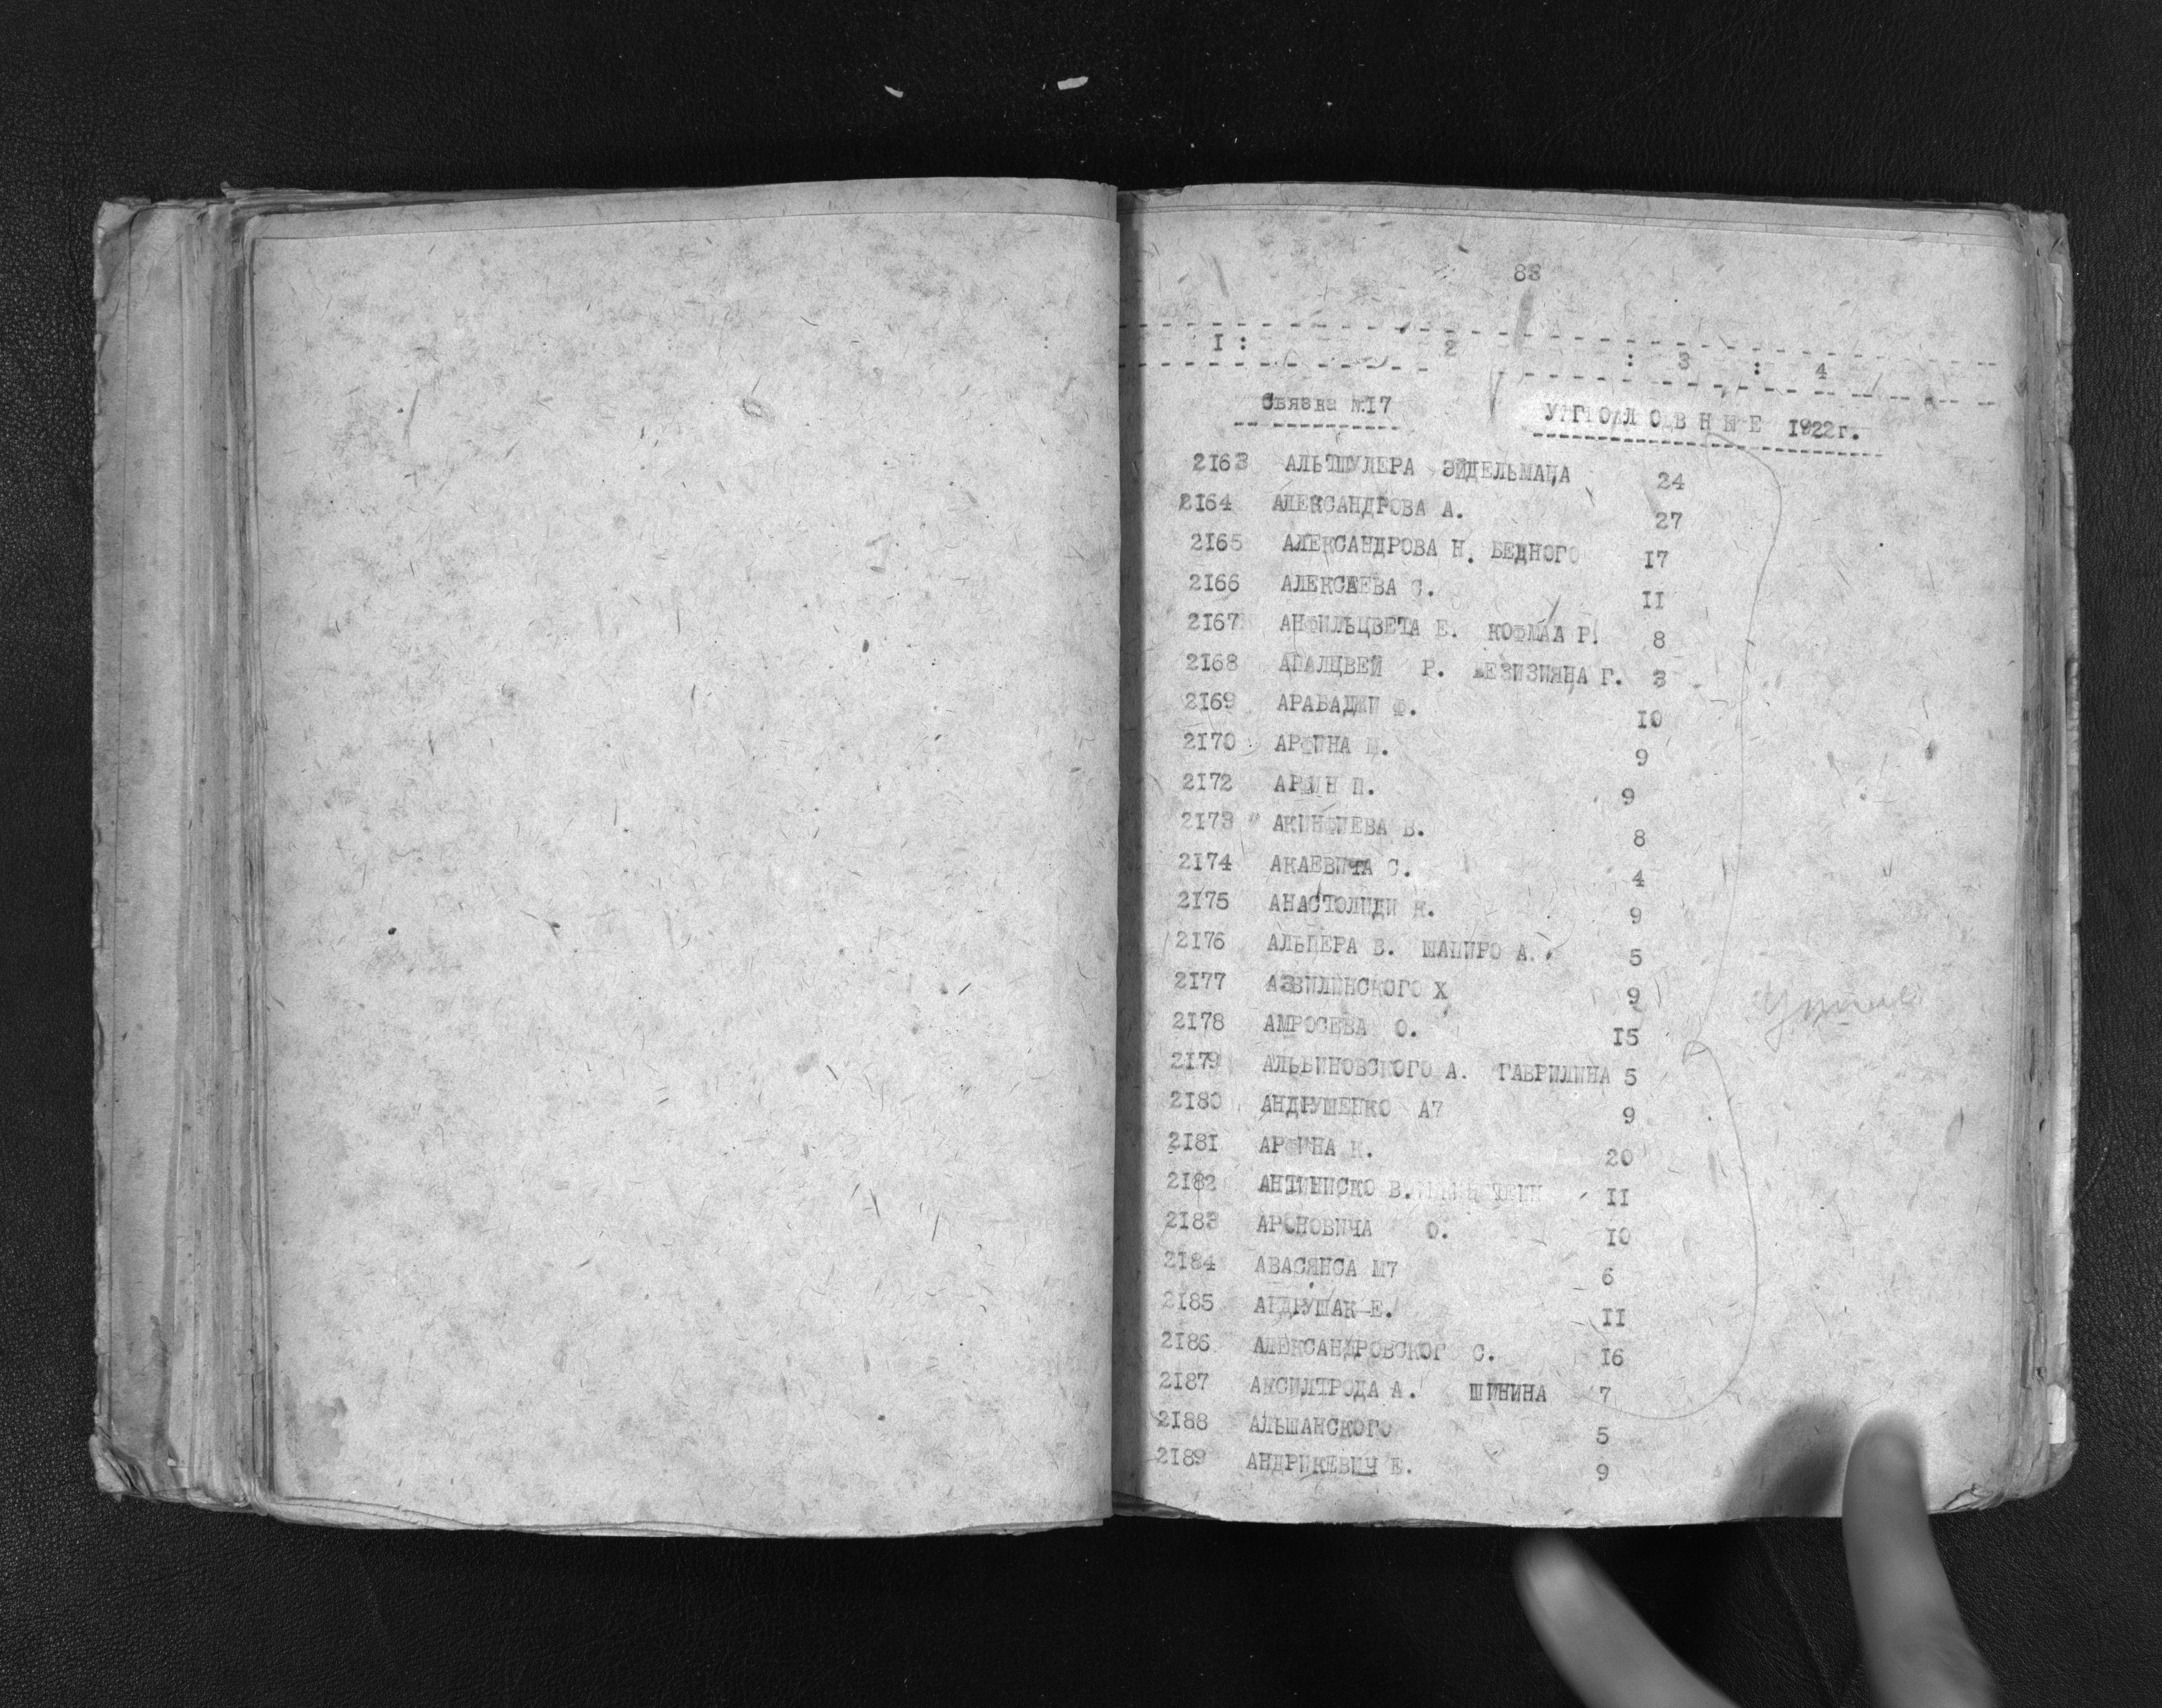 83
I : 2 : 3 : 4
Связка №17 УГОЛОВНЫЕ 1922г.
2163 АЛЬТШУЛЕРА ЭЙДЕЛЬМАНА 24
2164 АЛЕКСАНДРОВА А. 27
2165 АЛЕКСАНДРОВА Н. БЕДНОГО I7
2166 АЛЕКСЕЕВА С. II
2167 АНФИЛЬЦВЕТА Е. КОФМАА Р. 8
2168 АПАЛЦВЕЙ Р. Г. 3
2169 АРАБАДЖИ Ф. I0
2170 АРФИНА 9
2172 П. 9
2173 В. 8
2174 АКАЕВИЧА С. 4
2175 АНАСТОЛИДИ Н. 9
2176 АЛЬПЕРА В. ШАПИРО А. 5
2177 АЗВИЛИНСКОГО Х 9
2178 АМРОСЕВА О. I5
2179 АЛЬБИНОВСКОГО А. ГАВРИЛИНА 5
2180 АНДРУШЕНКО А7 9
2181 АРФИНА К. 20
2182 В. II
2183 АРОНОВИЧА О. I0
2184 АВАСЯНСА М7 6
2185 АНДРУШАК Е. II
2186 АЛЕКСАНДРОВСКОГ С. I6
2187 АКСИЛТРОДА А. ШИНИНА 7
2188 АЛЬШАНСКОГО 5
2189 АНДРИКЕВИЧ Е. 9